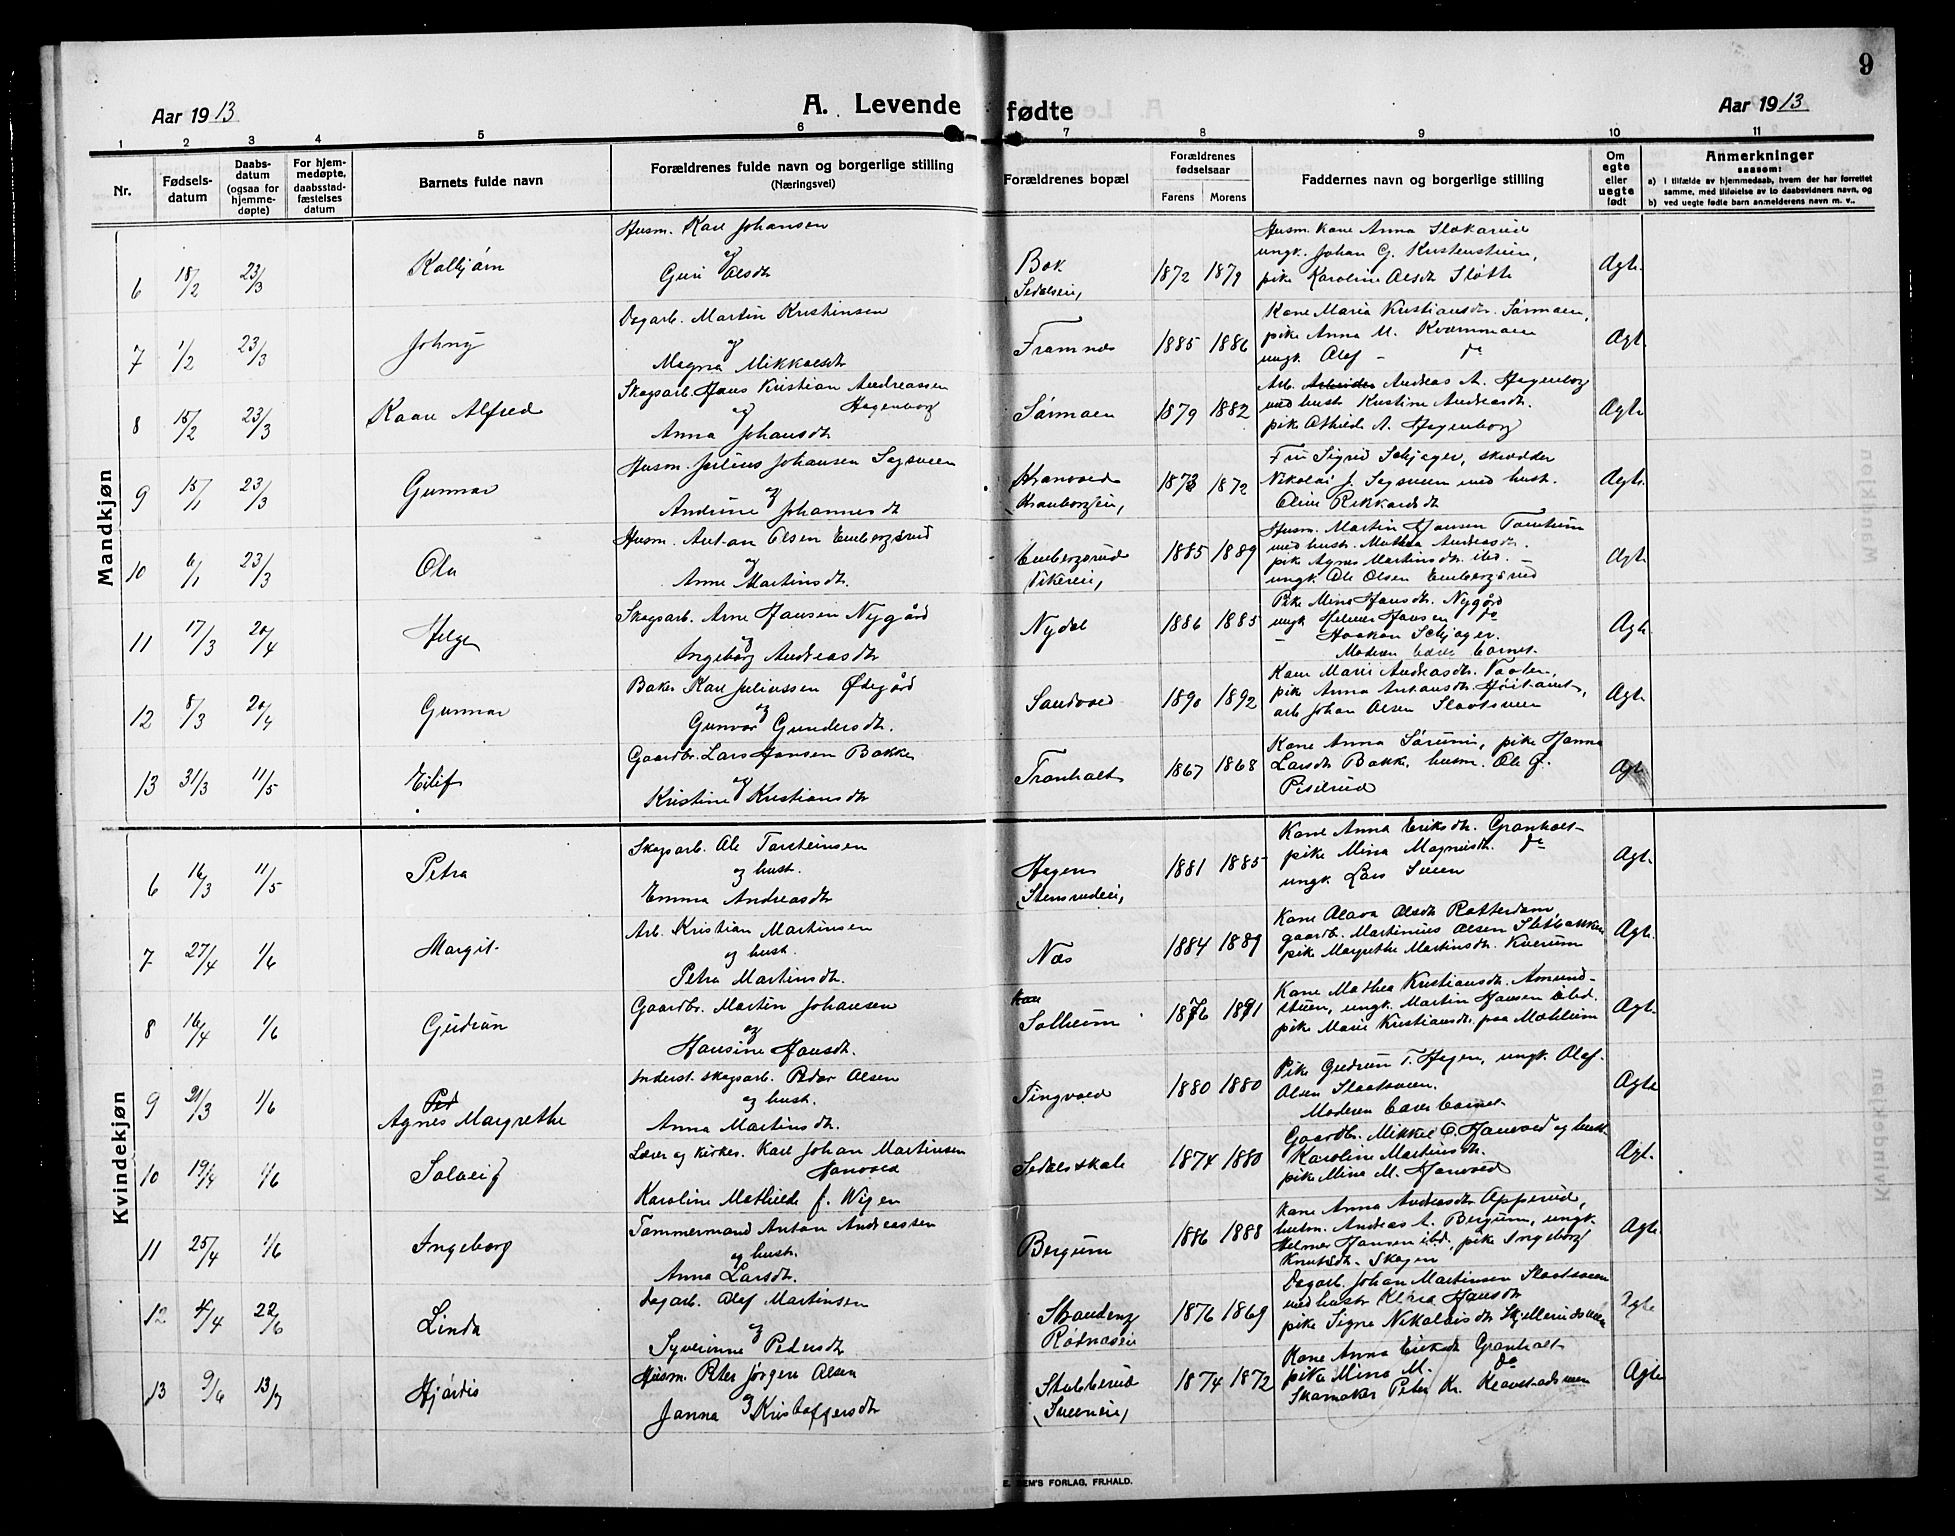 9
Aar 1913
A. Levende fødte
Aar 1913
1 2 3 4 5 6 7 8 9 10 11
Nr.
Fødsels-
datum
Daabs-
datum
(ogsaa for
hjemme-
døpte)
For hjem-
medøpte,
daabsstad-
fæstelses
datum
Barnets fulde navn
Forældrenes fulde navn og borgerlige stilling
(Næringsvei)
Forældrenes bopæl
Forældrenes
fødselsaar
Farens Morens
Faddernes navn og borgerlige stilling
Om
egte
eller
uegte
født
Anmerkninger
saasom:
a) i tilfælde av hjemmedaab, hvem der har forrettet
samme, med tilføielse av to daabsvidners navn, og
b) ved uegte fødte barn anmelderens navn m. v..
Mandkjøn
6 18/2 23/3 Kolbjørn
Husm. Karl Johansen
og
Guri Olsdt
Bak
1872 1879
Husm. kone Anna Slokarud
ungk. Johan G.
pike Karoline Olsdt Sløtte
Agte
7 1/2 23/3 Johny
Dagarb. Martin Kristinsen
og
Magna Mikkelsdt
Framnæs
1885 1886
Kone Maria Kristiansdt. Sørmoen,
pike Anna M. Kvernmoen
ungk. Olaf - do
Agt.
8 15/2 23/3 Kaare Alfred
Skogsarb. Hans Kristian Andreassen
Hagenborg
og
Anna Johansdt
Sørmoen
1879 1882
Arb. Andreas A. Hagenborg
med hustr. Kristine Andreasdt.
pike Othilde A. Hagenborg
Agte
9 15/1 23/3 Gunnar
Husm. Julius Johansen Sagsveen
og
Andrine Johannesdt
1873 1872
Fru Sigrid Schjager, skrædder
Nikolai J. Sagsveen med hust.
Oline Rikkardsdt
Agte.
10 6/1 23/3 Ola
Husm. Anton Olsen Embergsrud
og
Anne Martinsdt.
Embergsrud
Vikereie,
1885 1889
Husm. Martin Hansen
med hust. Mathea Andreasdt.
pike Agnes Martinsdt. ibd.
ungk. Ole Olsen Embergsrud
Agt.
11 17/3 20/4 Helge
Skogsarb. Arne Hansen Nygård
og
Ingeborg Andreasdt
Nydal
1886 1885
Pike Mina Hansdt. Nygård
ungk Helmer Hansen do
- Haakon Schjager.
Moderen bærer barnet.
Agt.
12 8/3 20/4 Gunnar
Baker Karl Juliussen Ødegård
og
Gunvor Gundersdt.
Sandvold
1890 1892
Kone Marie Andreasdt. Vaaler,
pike Anna Antonsdt.
arb Johan Olsen Slaatsveen
Agt
13 31/3 11/5 Eilif
Gaardbr. Lars Hansen Bakke
og
Kristine Kristiansdt
Tranholt
1867 1868
Kone Anna Sørum, pike Hanna
Larsdt Bakke. husm. Ole J.
Piselrud
Agt
Kvindekjøn
6 16/3 11/5 Petra
Skogsarb. Ole Torsteinsen
og hust.
Emma Andreasdt
Hagen
(Stensrudeie,
1881 1885
Kone Anna Eriksdt. Granholt
pike Mina Magnusdt. do
ungk Lars Sveen
Agt.
7 27/4 1/6 Margit
Arb. Kristian Martinsen
og hust.
Petra Martinsdt.
Næs
1884 1889
Kone Olava Olsdt Rotterdam,
gaardb. Martinius Olsen
pike Margrethe Martinsdt. Kverum
Agt.
8 16/4 1/6 Gudrun
Gaardbr. Martin Johansen
og
Hansine Hansdt.
Solheim
1876 1891
Kone Mathea Kristiansdt.
ungk. Martin Hansen ibd.
pike Marie Kristiansdt. paa Mohlum
Agt.
9 21/3 1/6 Agnes Margrethe
Inderst. skogsarb. Peder Olsen
og hust.
Anna Martinsdt.
Tingvold
1880 1880
Pike Gudrun T. Hagen, ungk. Olaf
Olsen Slaatsveen.
Moderen bærer barnet.
Agte
10 19/4 1/6 Solveig
Lærer og kirkes. Karl Johan Martinsen
Hanvold
Karoline Mathilde f. Wigen
Sedalsskole
1874 1880
Gaardbr. Mikkel O. Hanvold og hust
Karoline Martinsdt.
pike Mina M. Hanvold
Agt.
11 25/4 1/6 Ingeborg
Tømmermand Anton Andreassen
og hust.
Anna Larsdt.
Bergum
1886 1888
Kone Anna Andreasdt Opperud,
husm. Andreas A. Bergum, ungk.
Helmer Hansen ibd, pike Ingeborg
Knutsdt. Skogen
Agte
12 4/4 22/6 Linda
Dagarb. Olaf Martinsen
og
Syverinne Pedersdt.
Strandeng
Rotnæseie
1876 1869
Dagarb. Johan Martinsen Slaatsveen
med hustr Klara Hansdt
pike Signe Nikolaisdt Skjellerudsveen
Agte
13 9/6 13/7 Hjørdis
Husm. Peter Jørgen Olsen
og
Janna Kristoffersdt
Stubberud
(Sveeneie,
1874 1872
Kone Anna Eriksdt Granholt
pike Mina M. do
Skomaker Peter Kr. Kloovstadsveen
Agte
E. SEM'S FORLAG, FR.HALD.
Mandkjøn
Kvindekjøn